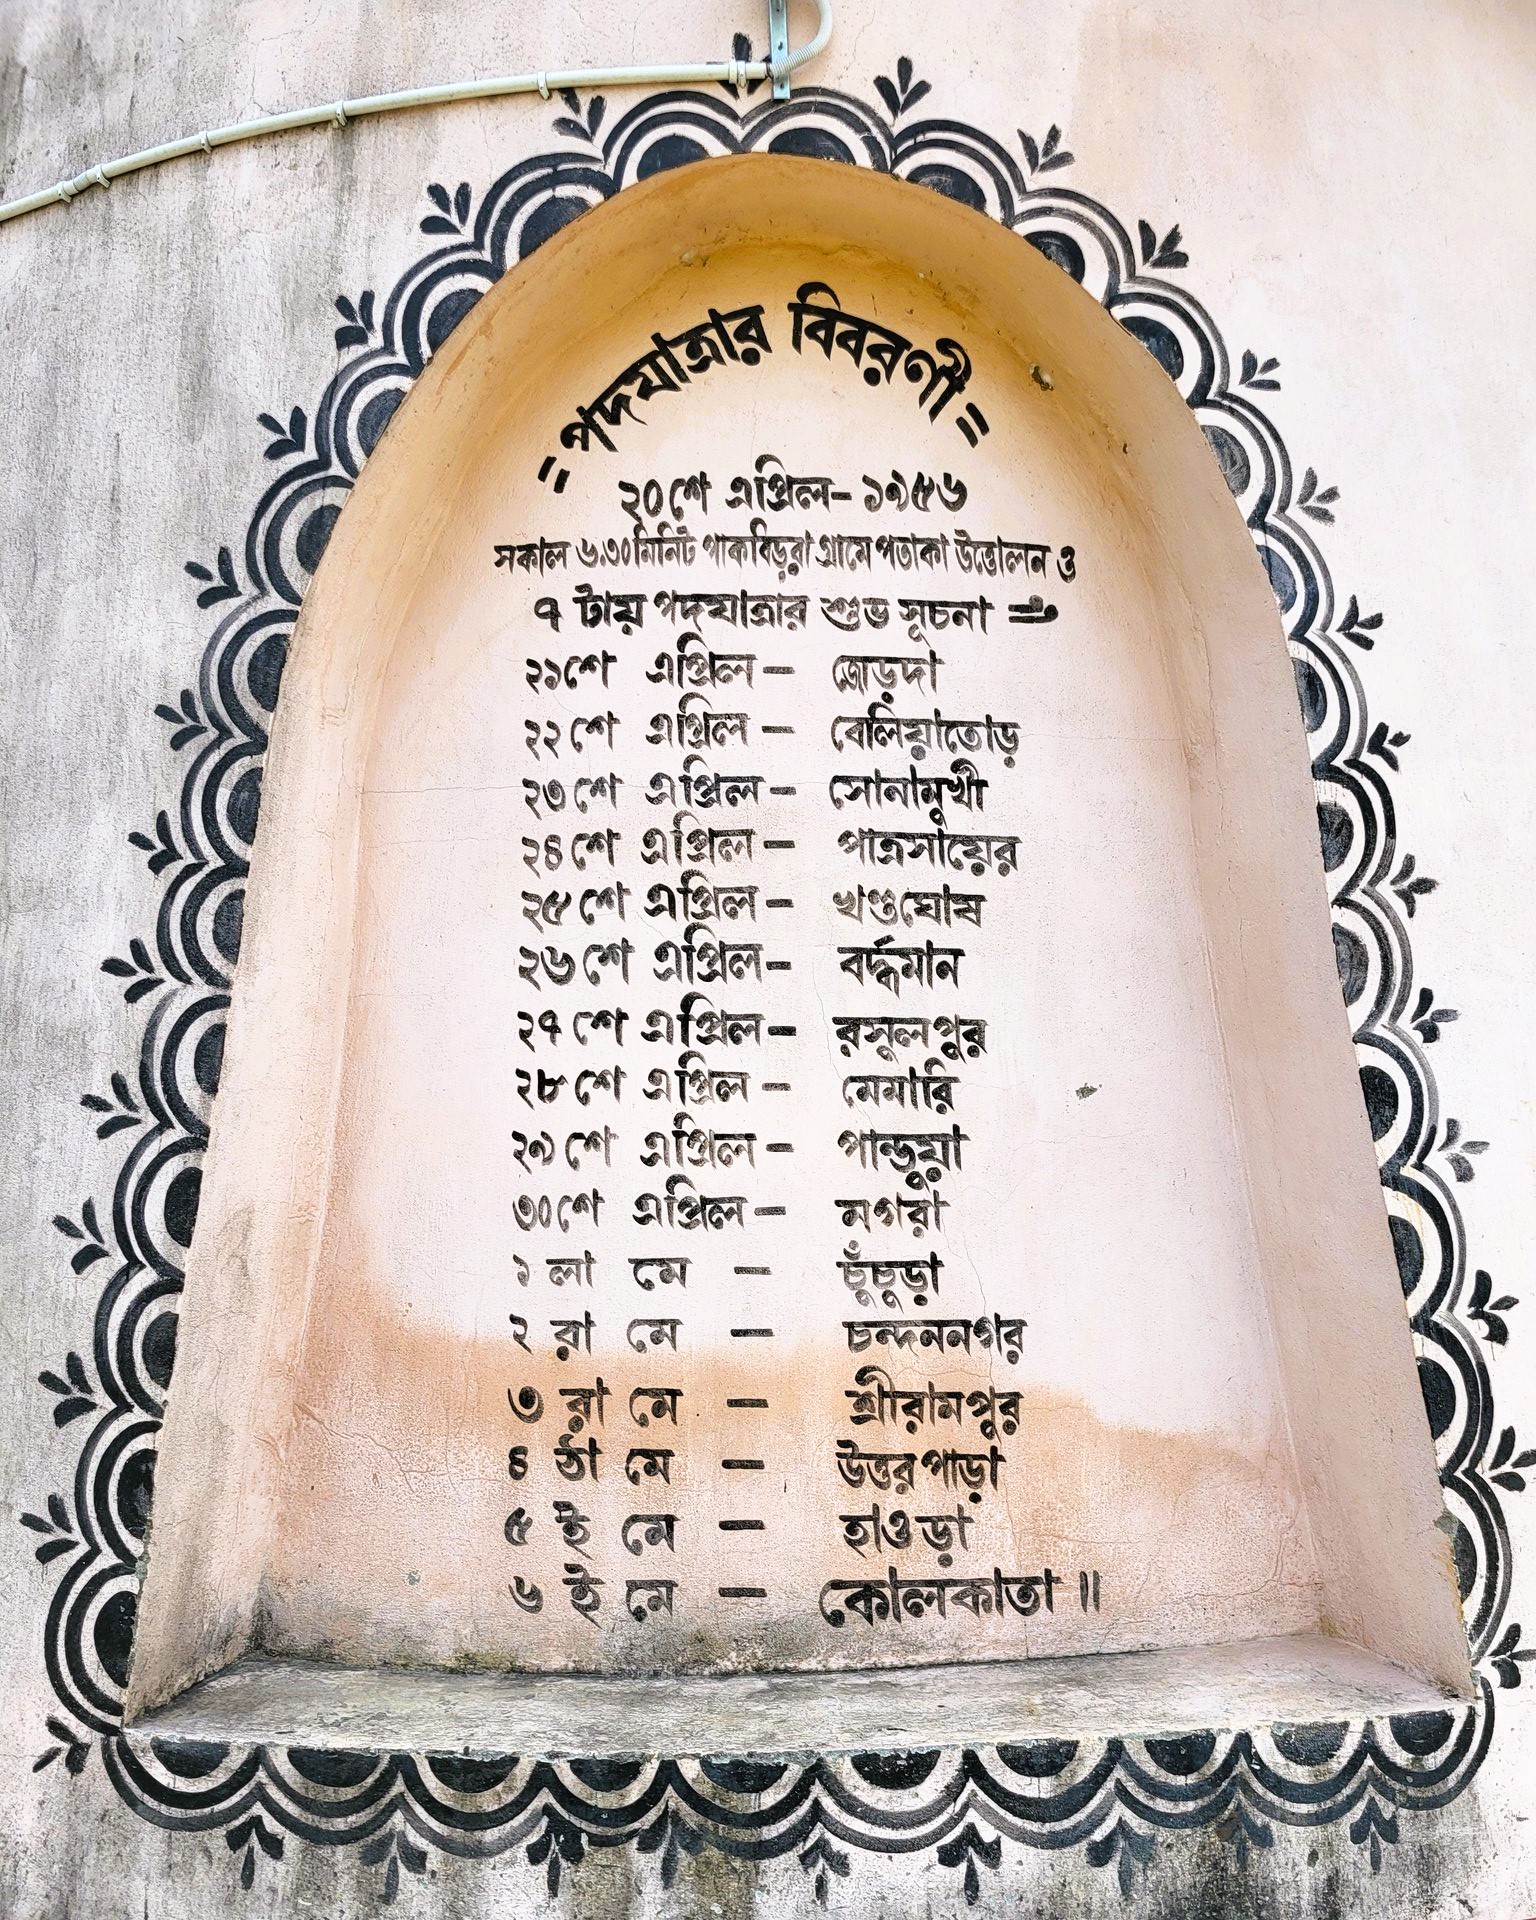 "পদযাত্রার বিবরণী"
২০শে এপ্রিল- ১৯৫৬
সকাল ৬.৩০মিনিট পাকবিড়রা গ্রামে পতাকা উত্তোলন ও
৭ টায় পদযাত্রার শুভ সূচনা
২১শে এপ্রিল - জোড়দা
২২শে এপ্রিল - বেলিয়াতোড়
২৩শে এপ্রিল - সোনামুখী
২৪শে এপ্রিল - পাত্রসায়ের
২৫শে এপ্রিল - খণ্ডঘোষ
২৬শে এপ্রিল - বর্দ্ধমান
২৭শে এপ্রিল - রসুলপুর
২৮শে এপ্রিল - মেমারি
২৯শে এপ্রিল - পান্ডুয়া
৩০শে এপ্রিল - মগরা
১ লা মে - চুঁচুড়া
২ রা মে - চন্দননগর
৩ রা মে - শ্রীরামপুর
৪ ঠা মে - উত্তরপাড়া
৫ ই মে - হাওড়া
৬ ই মে - কোলকাতা ॥